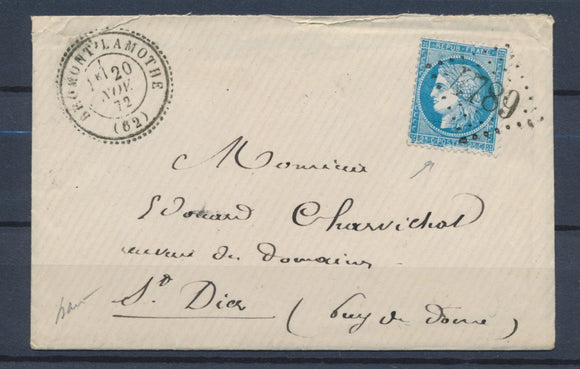 BROMONT-LAMOTHE
20
NOV.
72
(62)
REPUB. FRANC.
25 c. POSTES 25 c.
Monsieur
Edouard Charvichot
receveur des Domaines
St Dier (Puy de Dome)